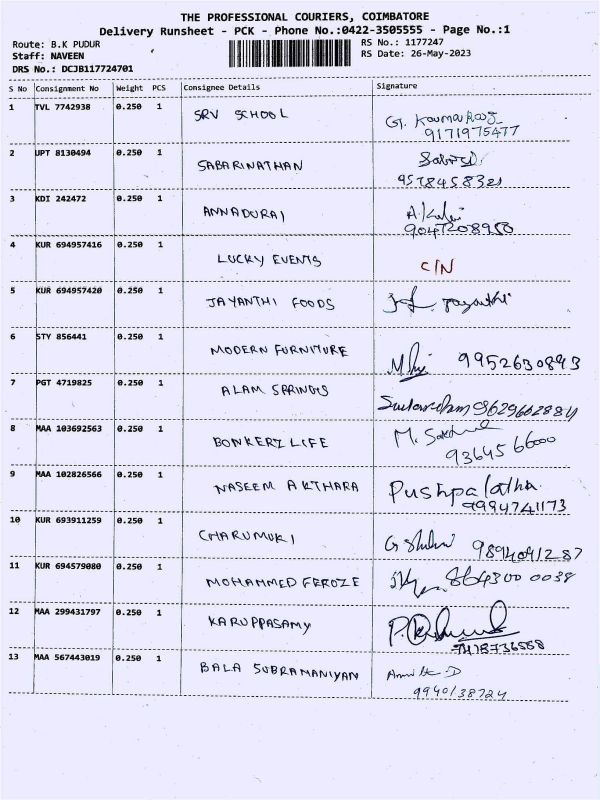 THE PROFESSIONAL COURIERS, COIMBATORE
Delivery Runsheet - PCK - Phone No.:0422-3505555 - Page No.:1
Route: B.K PUDUR
RS No.: 1177247
Staff: NAVEEN
RS Date: 26-May-2023
DRS No.: DCJB117724701
S No Consignment No Weight PCS Consignee Details Signature
1 TVL 7742938 0.250 1 SRV SCHOOL
9171975477
2 UPT 8130494 0.250 1 SABARINATHAN
9578458321
3 KDI 242472 0.250 1 ANNADURAI
9047208950
4 KUR 694957416 0.250 1 LUCKY EVENTS C/N
5 KUR 694957420 0.250 1 JAYANTHI FOODS
6 STY 856441 0.250 1 MODERN FURNITURE 9952630893
7 PGT 4719825 0.250 1 ALAM SPRINGS 9629662884
8 MAA 103692563 0.250 1 BONKERZ LIFE
9364566000
9 MAA 102826566 0.250 1 NASEEM AKTHARA Pushpalatha
9994741173
10 KUR 693911259 0.250 1 CHARUMUKI 9894091287
11 KUR 694579080 0.250 1 MOHAMMED FEROZE 864300 0038
12 MAA 299431797 0.250 1 KARUPPASAMY
13 MAA 567443019 0.250 1 BALA SUBRAMANIYAN
9940138724